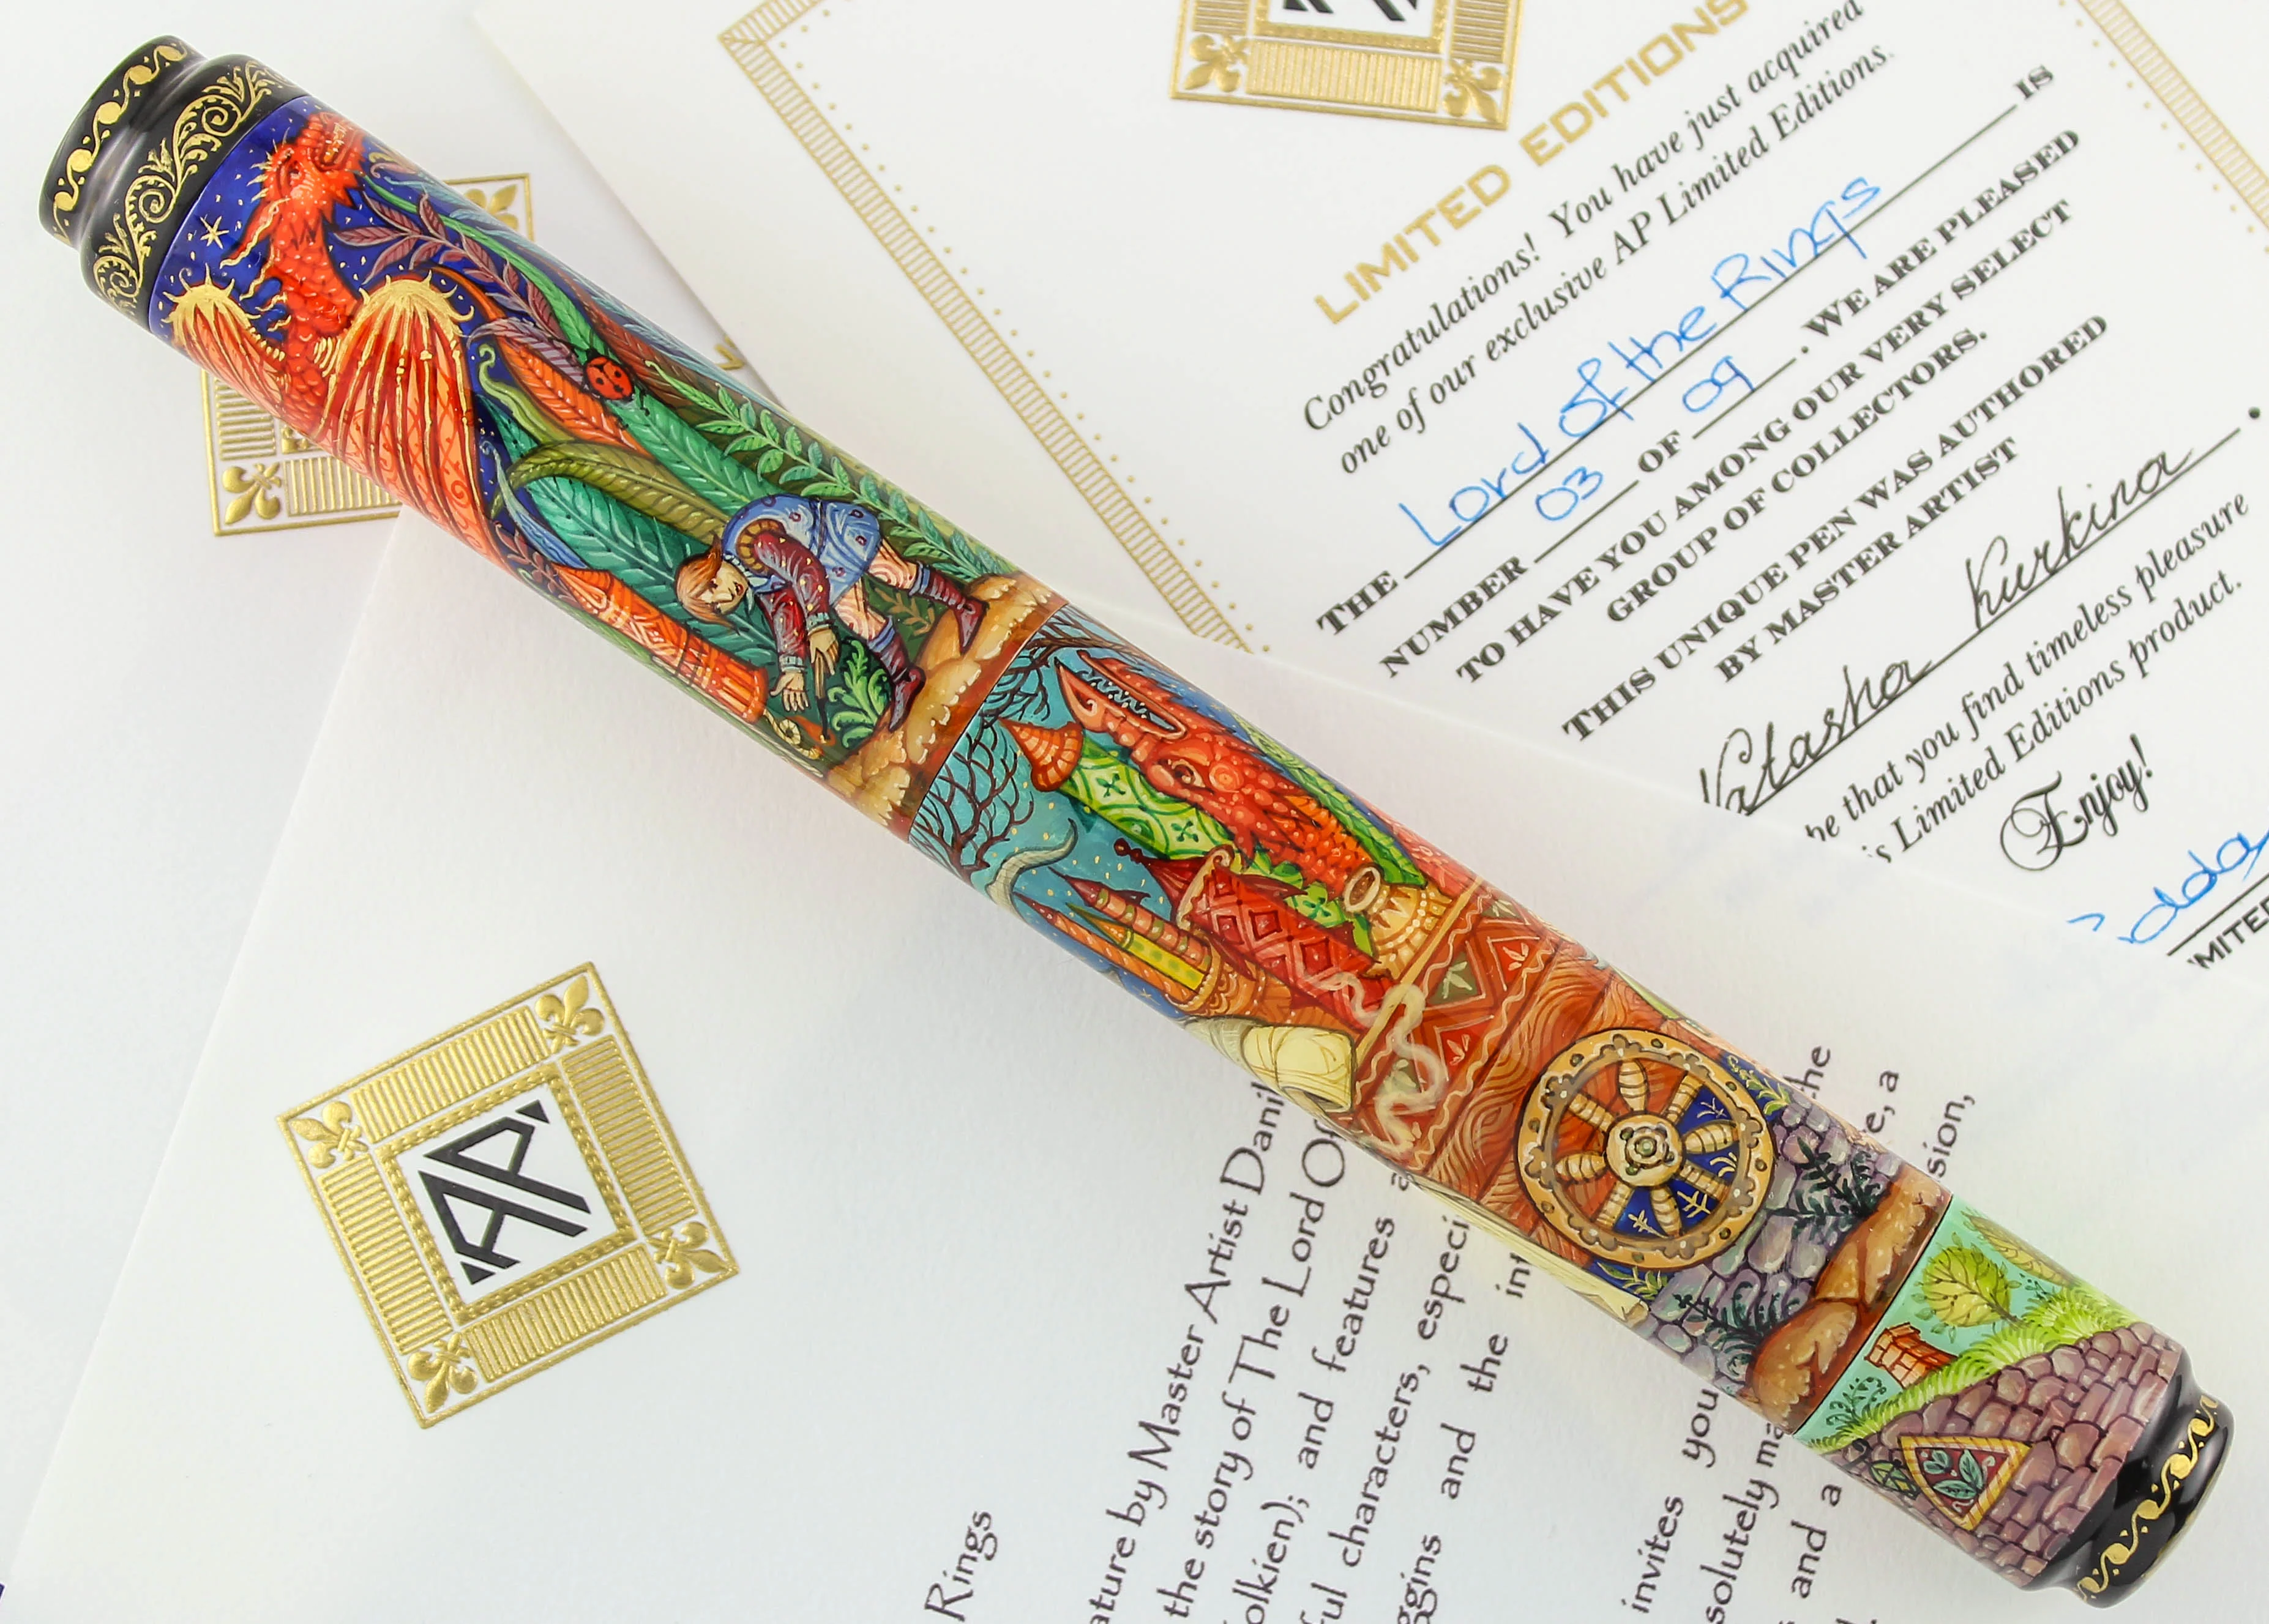 AP
LIMITED EDITIONS
Congratulations! You have just acquired
one of our exclusive AP Limited Editions.
THE Lord of the Rings IS
NUMBER 03 OF 09. WE ARE PLEASED
TO HAVE YOU AMONG OUR VERY SELECT
GROUP OF COLLECTORS.
THIS UNIQUE PEN WAS AUTHORED
BY MASTER ARTIST
Natasha Kurkina.
be that you find timeless pleasure
is Limited Editions product.
Enjoy!
MITED
AP
Rings
ature by Master Artist Danil
the story of The Lord Of the
olkien); and features a
ful characters, especi
ggins and the int
invites you
solutely ma
and a
e, a
sion,